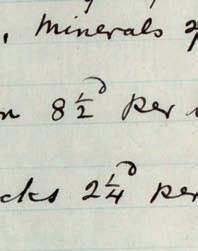 , Minerals
n 8½ᵈ per
cks 2¼ᵈ per